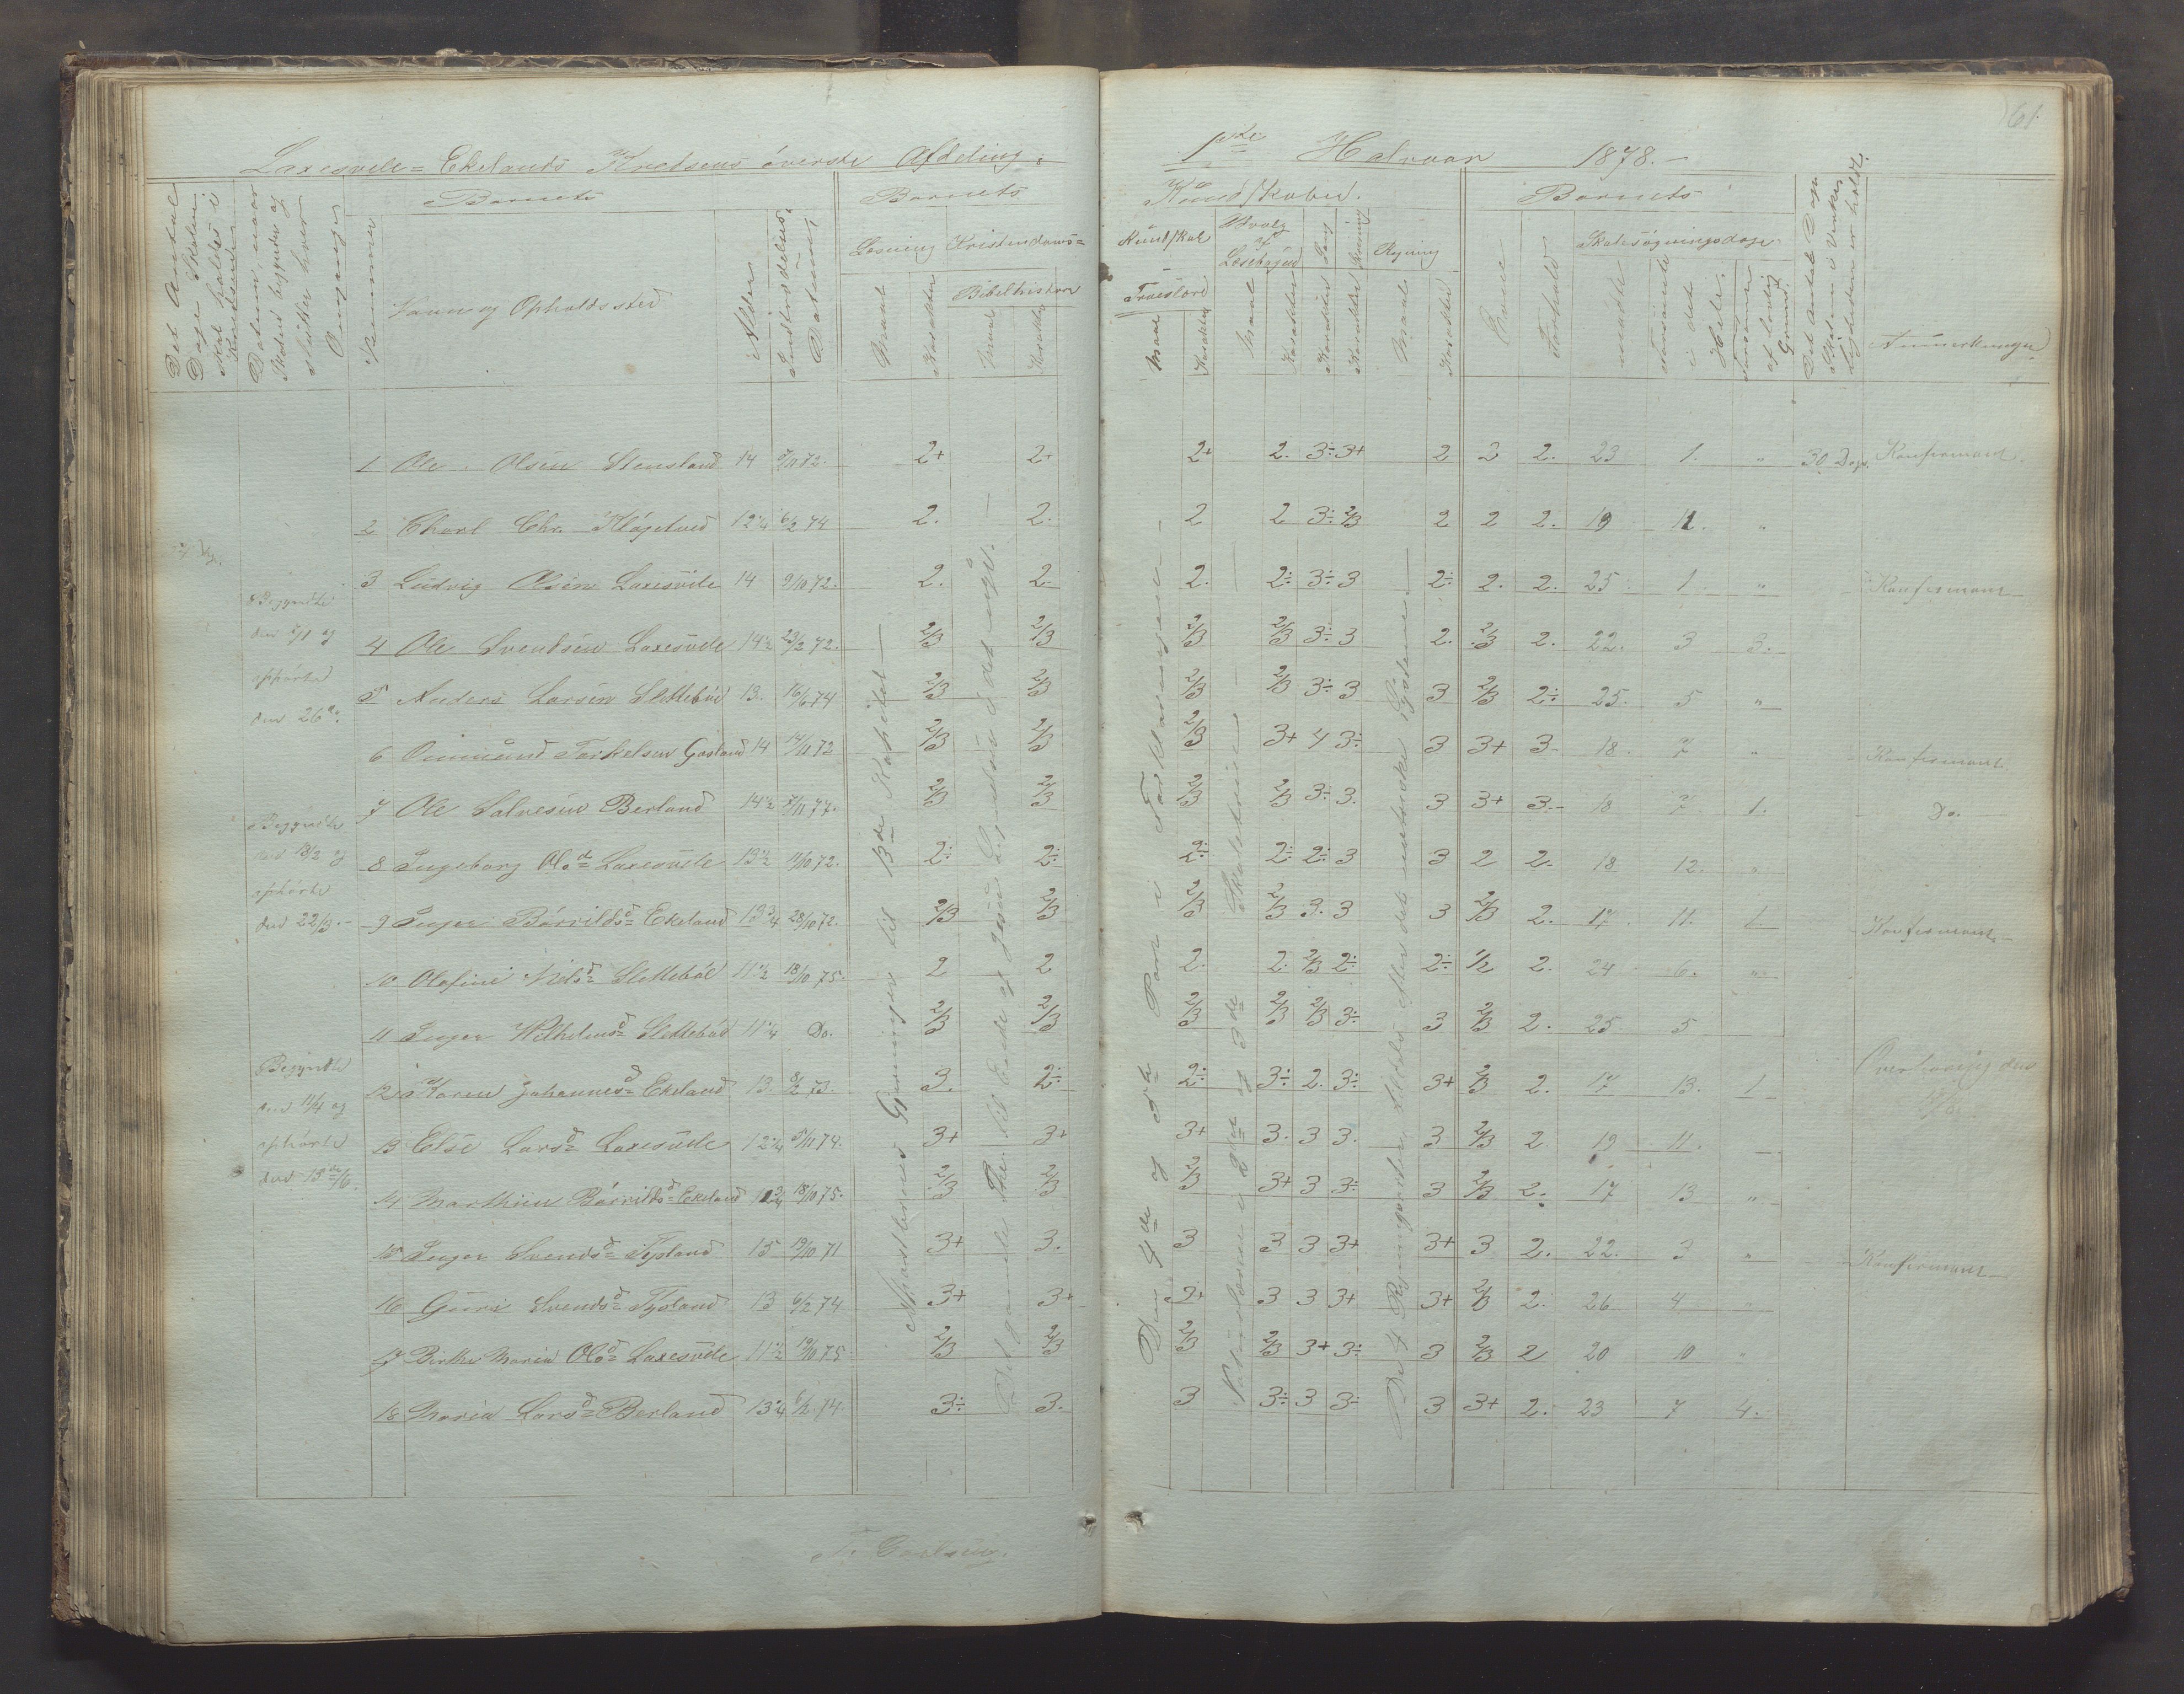 61.
Laxesvele = Ekelands Kredsens øverste Afdeling.
1ste Halvaar 1878.
Det Antal Dage Skolen skal holdes i Kredsen
Datum, naar Skolen begynder og slutter hver Omgang
Nummer
Barnets
Navn og Opholdssted
Alder
Indtrædelses Datum
Barnets Kundskaber.
Læsning
Maal
Karakter
Kristendoms=
Bibelhistorie
Maal
Karakter
Kundskab
Troeslære
Maal
Karakter
Udvalg af Læsebogen
Maal
Karakter
Sang
Karakter
Skrivning
Karakter
Regning
Maal
Karakter
Barnets
Evne
Forhold
Skolesøgningsdage
mødte
forsømte i det Hele
forsømte af lovlig Grund
Det Antal Dage Skolen i Virkeligheden er holdt.
Anmerkninger
1 Ole Olsen Stensland 14 9/11 72. 2+ 2+ 2+ 2. 3÷ 3+ 2 2 2. 23 1. " 30 Dage. Konfirmant.
2 Charl Chr. Kløgetved 12 1/4 6/2 74 2. 2. 2 2 3÷ 2/3 2 2 2. 19 11. "
3 Ludvig Olsen Laxesvele 14 9/10 72. 2. 2. 2. 2÷ 3÷ 3 2÷ 2. 2. 25 1 " Konfirmant
4 Ole Svendsen Laxesvele 14 1/2 23/2 72. 2/3 2/3 2/3 2/3 3÷ 3 2. 2/3 2. 22. 3 3.
5 Anders Larsen Slettebøe 13. 16/6 74 2/3 2/3 2/3 2/3 3÷ 3 3 2/3 2÷ 25. 5 "
6 Ommund Torkelsen Gosland 14 14/11 72 2/3 2/3 2/3 3+ 4 3÷ 3 3+ 3 18. 7 " Konfirmant
7 Ole Salvesen Berland 14 1/2 7/11 77. 2/3 2/3 2/3 2/3 3÷ 3. 3 3+ 3. 18 7 1. Do.
8 Ingeborg Olsd. Laxesvele 13 1/2 9/10 72. 2÷ 2÷ 2÷ 2÷ 2÷ 3 3 2 2. 18 12. "
9 Inger Børrildsd. Ekeland 13 3/4 28/10 72. 2/3 2/3 2/3 2/3 3. 3 3 2/3 2. 17. 11. 1. Konfirmant
10 Olefine Nilsd. Slettebøe 11 1/2 18/10 75. 2 2 2. 2. 2/3 2÷ 2÷ 1/2 2. 24 6. "
11 Inger Wilhelmsd. Slettebøe 11 1/4 Do. 2/3 2/3 2/3 2/3 2/3 3÷ 3 2/3 2. 25 5
12 Karen Johannesd. Ekeland 13. 8/2 73. 3. 2÷ 2÷ 3÷ 2. 3÷ 3+ 2/3 2. 17 13. 1
13 Else Larsd. Laxesvele 12 1/4 5/11 74. 3+ 3+ 3+ 3. 3 3. 3 2/3 2. 19 11.
14 Marthine Børrildsd. Ekeland 18/10 75. 2/3 2/3 2/3 3+ 3 3÷ 3 2/3 2. 17 13 "
15 Inger Svendsd. Tysland 15 19/10 71 3+ 3. 3 3 3 3+ 3+ 3 2. 22. 3 " Konfirmant
16 Guri Svendsd. Tysland 13 6/2 74 3+ 3+ 3+ 3 3 3+ 3+ 2/3 2. 26 4 "
17 Birthe Maria Olsd. Laxesvele 11 1/2 19/10 75 2/3 2/3 2/3 2/3 3+ 3÷ 3 2/3 2 20 10 "
18 Maria Larsd. Berland 13 1/4 6/2 74. 3÷ 3. 3 3÷ 3 3÷ 3 3+ 2. 23 7 4.
Begyndte den 7/1 og ophørte den 26de.
Begyndte den 18/2 og ophørte den 22/3.
Begyndte den 11/4 og ophørte den 15de/6.
til 13de Kapitel
Det gamle Th. til Ende
Den 4de og 5te Part i Forklaringen
2den og 3de Skoletrin
De 4 Regningsarter